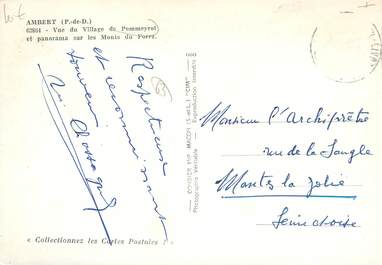 AMBERT (P.-de-D.)
62864 - Vue du Village du Pommeyrol
et panorama sur les Monts du Forez.
Respectueux
et reconnaissant
souvenir
COMBIER IMP. MACON (S.-et-L.) "CIM"
Photographie Véritable - Reproduction interdite
Monsieur l'Archiprêtre
rue de la Sangle
Mantes la Jolie
Seine et oise
« Collectionnez les Cartes Postales ! »